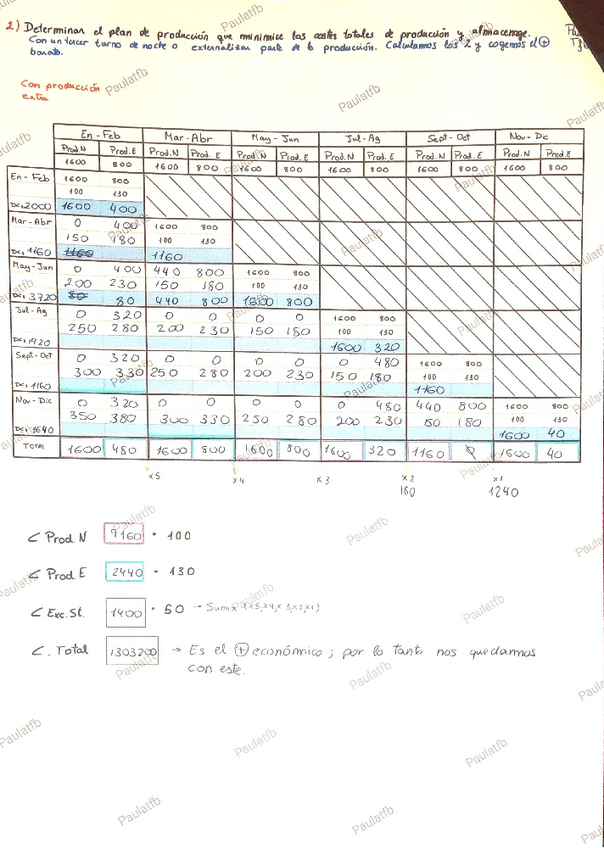 2) Determinar el plan de producción que minimice los costes totales de producción y almacenage.
Con un tercer turno de noche o externalizar parte de la producción. Calculamos los 2 y cogemos el +
barato.
Con producción
extra
En - Feb Mar - Abr May - Jun Jul - Ag Sept - Oct Nov - Dic
Prod.N Prod.E Prod.N Prod.E Prod.N Prod.E Prod.N Prod.E Prod.N Prod.E Prod.N Prod.E
1600 800 1600 800 1600 800 1600 800 1600 800 1600 800
En - Feb 1600 800
100 130
2000 1600 400
Mar - Abr 0 400 1600 800
150 180 100 130
1160 1160 1160
May - Jun 0 400 440 800 1600 800
200 230 150 180 100 130
3720 80 80 440 800 1600 800
Jul - Ag 0 320 0 0 0 0 1600 800
250 280 200 230 150 180 100 130
1920 1600 320
Sept - Oct 0 320 0 0 0 0 0 480 1600 800
300 330 250 280 200 230 150 180 100 130
1160 1160
Nov - Dic 0 320 0 0 0 0 0 480 440 800 1600 800
350 380 300 330 250 280 200 230 150 180 100 130
1640 1600 40
TOTAL 1600 480 1600 800 1600 800 1600 320 1160 0 1600 40
x5 x4 x3 x2 x1
180 1240
C Prod N 9160 · 100
C Prod E 2440 · 130
C Exc. St. 1400 · 50 → Suma (x5, x4, x3, x2, x1)
C. Total 1303200 → Es el + económico; por lo tanto nos quedamos
con este.
Paulatfb